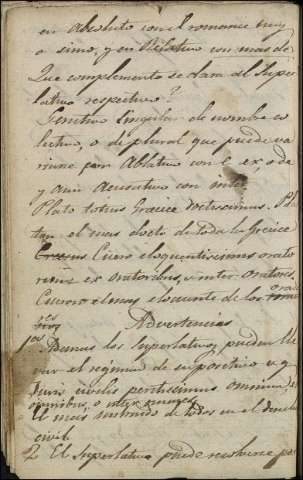 en Absoluto con el romance muy
o simo, y en Relativo con mas de
Que complemento se dara al Super
lativo respectivo?
Genitivo singular de nombre co
lectivo, o de plural que puede va
riarse por Ablativo con e ex, o de
y aun Acusativo con inter
Plato totius Graeciae doctissimus. Pla
ton el mas docto de toda la Grecia
Cicero eloquentissimus orato
rum ex oratoribus, v. inter oratores.
Ciceron el mas elocuente de los orado
res
Advertencias
1a Ademas los Superlativos pueden lle
var el régimen de su positivo v. g
Juris civilis peritissimus omnium, ex
omnibus, o inter omnes,
El mas instruido de todos en el derecho
civil.
2 El Superlativo puede resolverse por